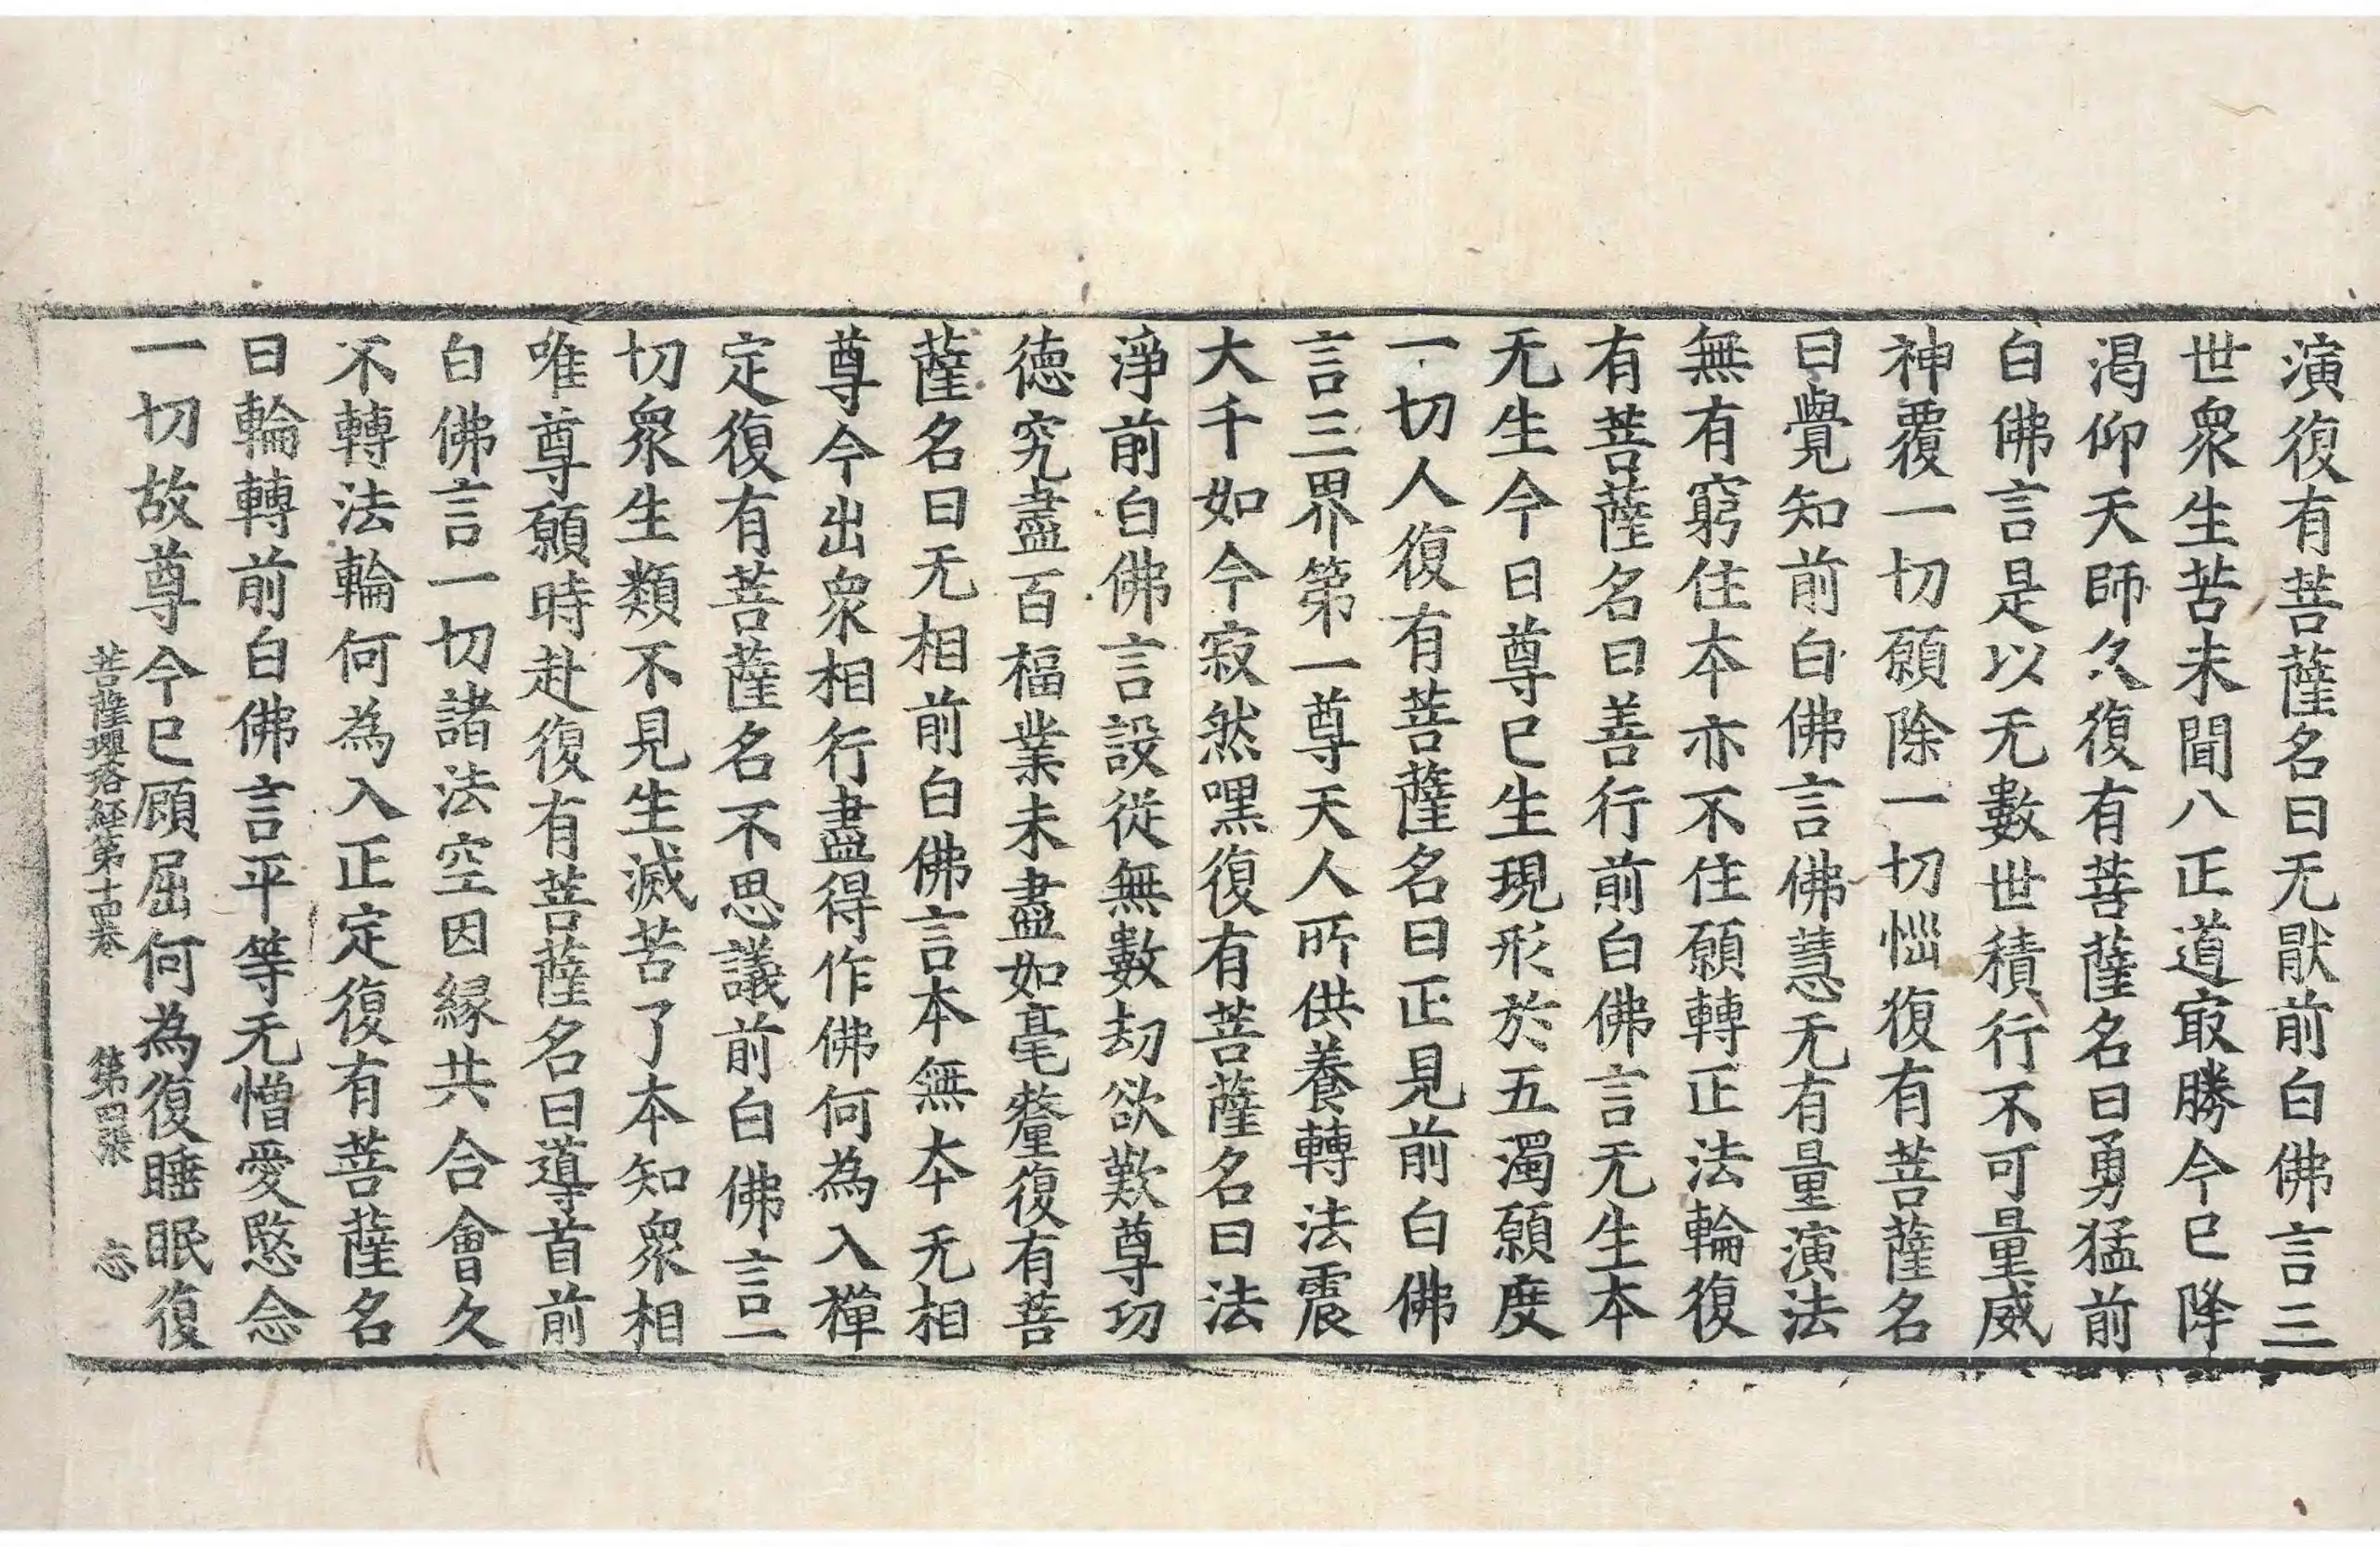 演復有菩薩名曰无猒前白佛言三
世衆生苦未聞八正道㝡勝今已降
渇仰天師久復有菩薩名曰勇猛前
白佛言是以无數世積行不可量威
神覆一切願除一切惱復有菩薩名
曰覺知前白佛言佛慧无有量演法
無有窮住本亦不住願轉正法輪復
有菩薩名曰善行前白佛言无生本
无生今日尊已生現形於五濁願度
一切人復有菩薩名曰正見前白佛
言三界第一尊天人所供養轉法震
大千如今寂然嘿復有菩薩名曰法
淨前白佛言設從無數劫欲歎尊功
德究盡百福業未盡如毫釐復有菩
薩名曰无相前白佛言本無本无相
尊今出衆相行盡得作佛何為入禪
定復有菩薩名不思議前白佛言一
切衆生類不見生滅苦了本知衆相
唯尊願時赴復有菩薩名曰導首前
白佛言一切諸法空因緣共合會久
不轉法輪何為入正定復有菩薩名
曰輪轉前白佛言平等无憎愛愍念
一切故尊今已顧屈何為復睡眠復
菩薩瓔珞經第十四卷 第四張 忘